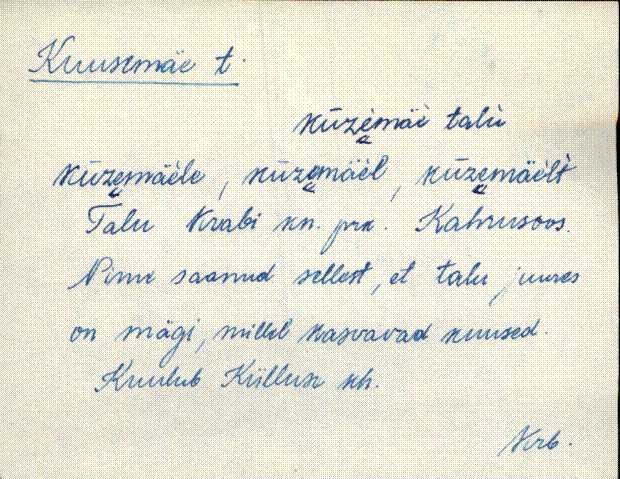 Kuusemäe t.
kūzemäe talu
kūzemäele, kūzemäel, kūzemäelt
Talu Krabi kn. prk. Kahrusoos.
Nime saanud sellest, et talu juures
on mägi, millel kasvavad kuused.
Kuulub Külluse kh.
Krb.